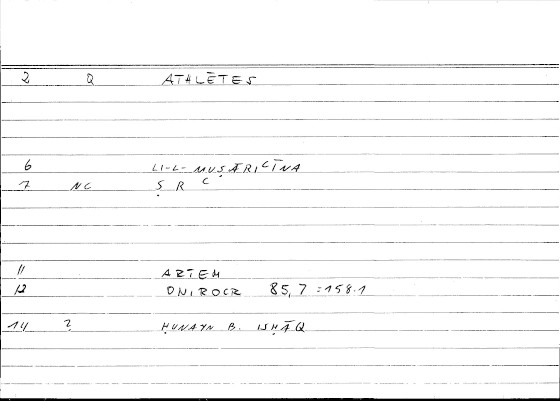 2 Q ATHLĒTES
6 LI-L-MUṢĀRIᶜĪNA
7 NC Ṣ R ᶜ
11 ARTEM
12 ONIROCR 85,7 :158.1
14 2 ḤUNAYN B. ISḤĀQ